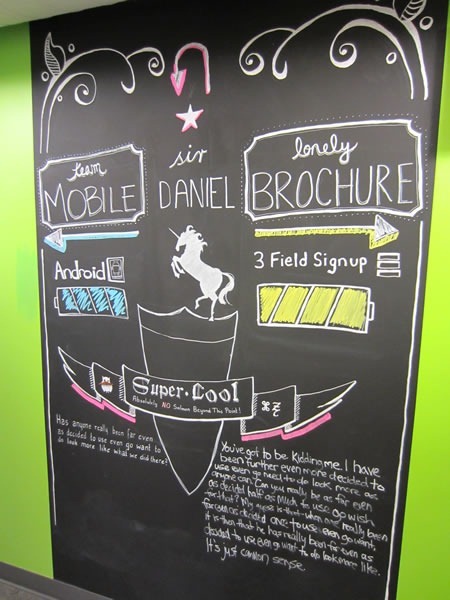 team
MOBILE
sir
DANIEL
lonely
BROCHURE
Android
3 Field Signup
Super·Cool
Absolutely NO Salmon Beyond This Point!
⌘ Z
Has anyone really been far even
as decided to use even go want to
do look more like what we did there?
You've got to be kidding me. I have
been further even more decided to
use even go need to do look more as
anyone can. Can you really be as far even
as decided half as much to use go wish
for that? My guess is that when one really been
far even as decided once to use even go want,
it is then that he has really been far even as
decided to use even go want to do look more like.
It's just common sense.